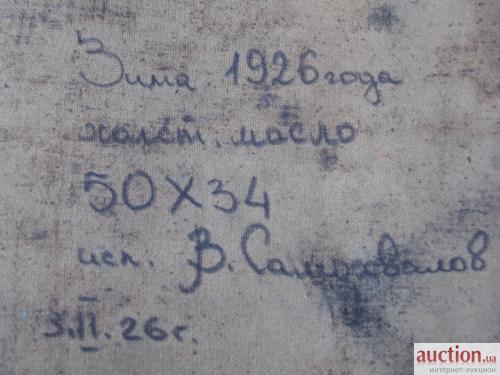 Зима 1926 года
холст. масло
50X34
исп. В. Самохвалов
3.II.26 г.
auction.ua
интернет-аукцион